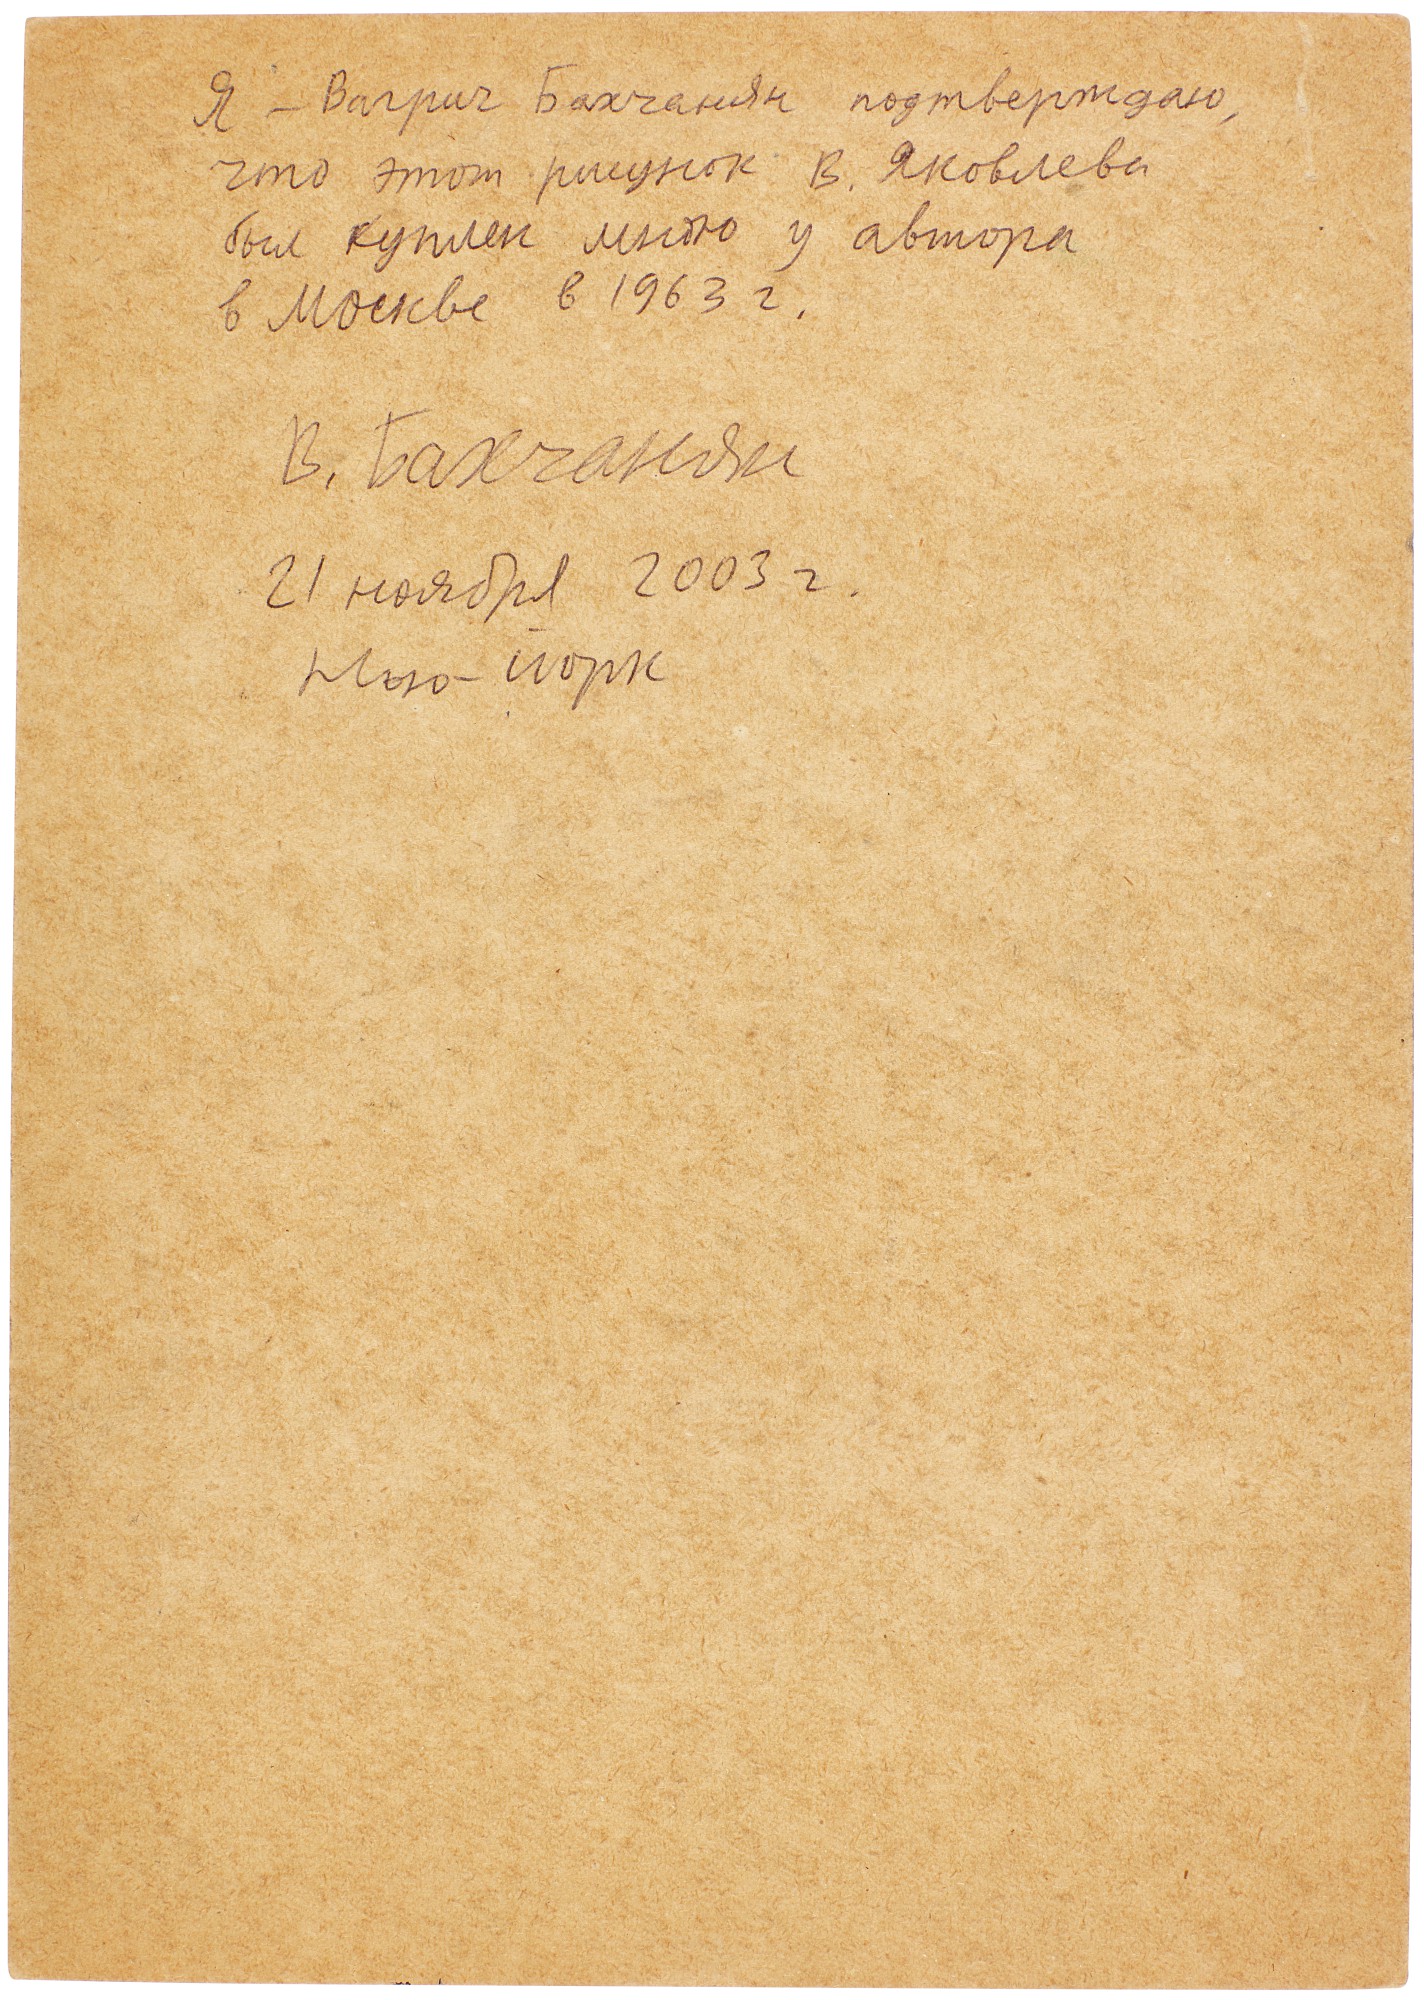 Я – Вагрич Бахчанян подтверждаю,
что этот рисунок В. Яковлева
был куплен мною у автора
в Москве в 1963 г.
В. Бахчанян
21 ноября 2003 г.
Нью-Йорк